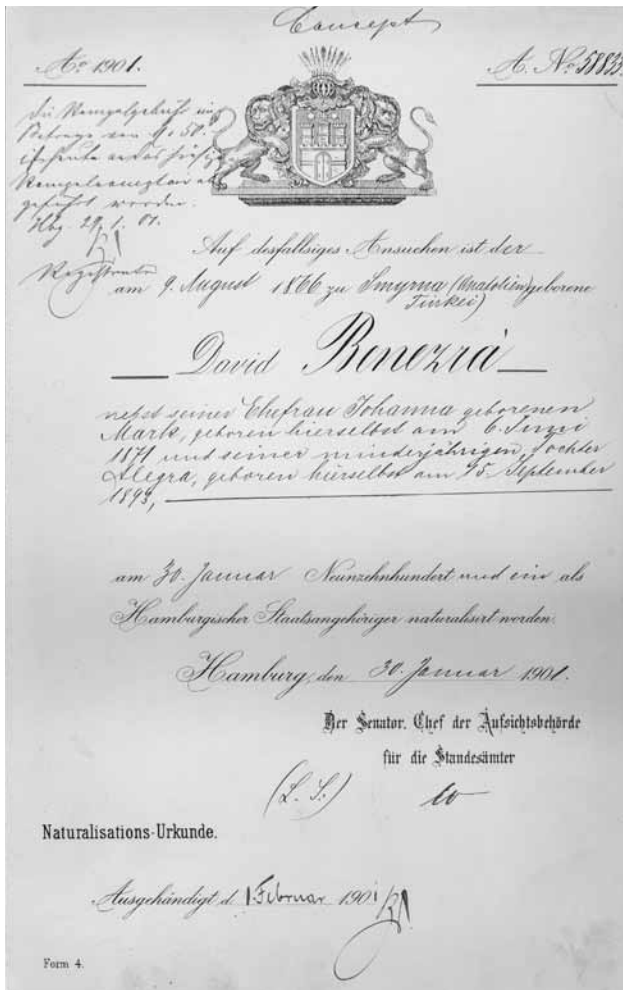 Concept
Ao 1901.
A. No 58833.
die Stempelgebühr im
Betrage von M. 50.
ist heute
Stempel
geführt worden.
Hbg. 29/1. 01.
Auf desfallsiges Ansuchen ist der
am 9. August 1866 zu Smyrna (Anatolien) geborene
Türkei)
David Benezrà
nebst seiner Ehefrau Johanna geborenen
Mark, geboren hierselbst am 6. Juni
1871 und seiner minderjährigen Tochter
Alegra, geboren hierselbst am 15. September
1893,
am 30. Januar Neunzehnhundert und ein als
Hamburgischer Staatsangehöriger naturalisirt worden.
Hamburg, den 30. Januar 1901.
Der Senator, Chef der Aufsichtsbehörde
für die Standesämter
(L. S.)
Naturalisations-Urkunde.
Ausgehändigt d. 1. Februar 1901
Form 4.